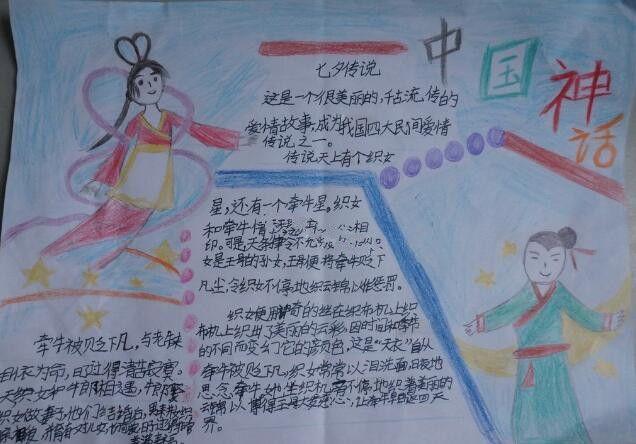 中国神话
七夕传说
这是一个很美丽的,千古流传的
爱情故事,成为我国四大民间爱情
传说之一。
传说天上有个织女
星,还有一个牵牛星。织女
和牵牛情
相
印。可是,天条律令不
女是王母的孙女,王母便将牵牛贬下
凡尘,令织女不停地织云锦以作惩罚。
织女便用神奇的丝在织布机上织
布机上织出了美丽的云彩,因时间和季节
的不同而变幻它的颜色,这是“天衣”自从
牵牛被贬下凡,织女常常以泪洗面,日夜地
思念牵牛,她坐织机不停地织着美丽的
云锦以博得王母大发慈心,让牵牛早日返回天
界。
牵牛被贬下凡,与老牛
相依为命,日过得清苦寂寞。
天织女和牛郎相遇,牛郎
织女做妻子,他们结